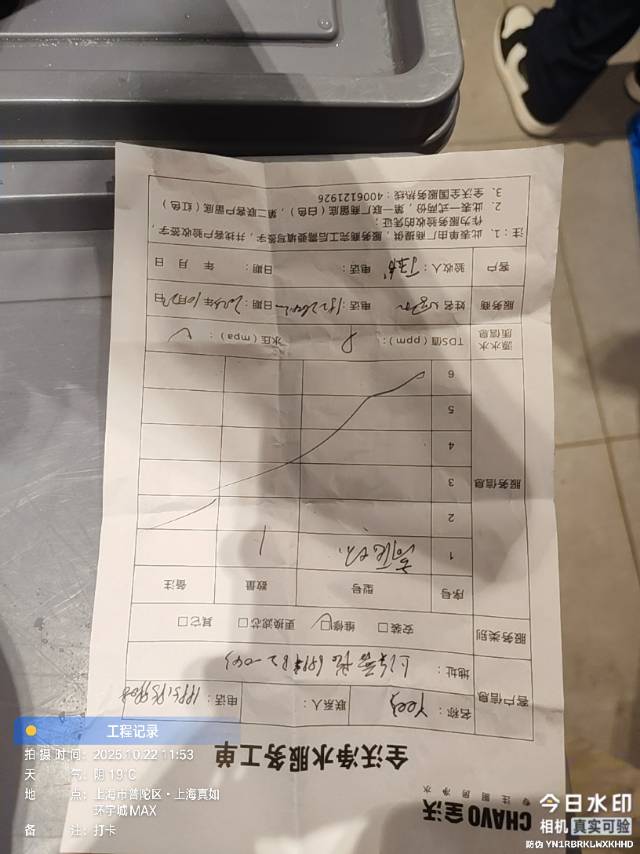 CHAVO全沃
专注厨房净水
全沃净水服务工单
客户信息
名称： Yoes
联系人：
电话：
地址：
服务类别
安装□ 维修□ 更换滤芯□ 其它□
服务信息
序号 型号 数量 备注
1 高压开 1
2
3
4
5
6
源水水质信息
TDS值(ppm)：
水压(mpa)：
服务商
姓名
电话：
日期：2025年10月22日
客户
验收人：
电话：
日期： 年 月 日
注：1、此表单由厂商提供，服务商完工后需要填写签字，并找客户验收签字，
作为服务验收的凭证；
2、此表一式两份，第一联厂商留底（白色），第二联客户留底（红色）
3、全沃全国服务热线：4006121926
工程记录
拍摄时间：2025.10.22 11:53
天气：阴 19℃
地点：上海市普陀区·上海真如
环宇城MAX
备注：打卡
今日水印
相机 真实可验
防伪 YN1RBRKLWXKHHD